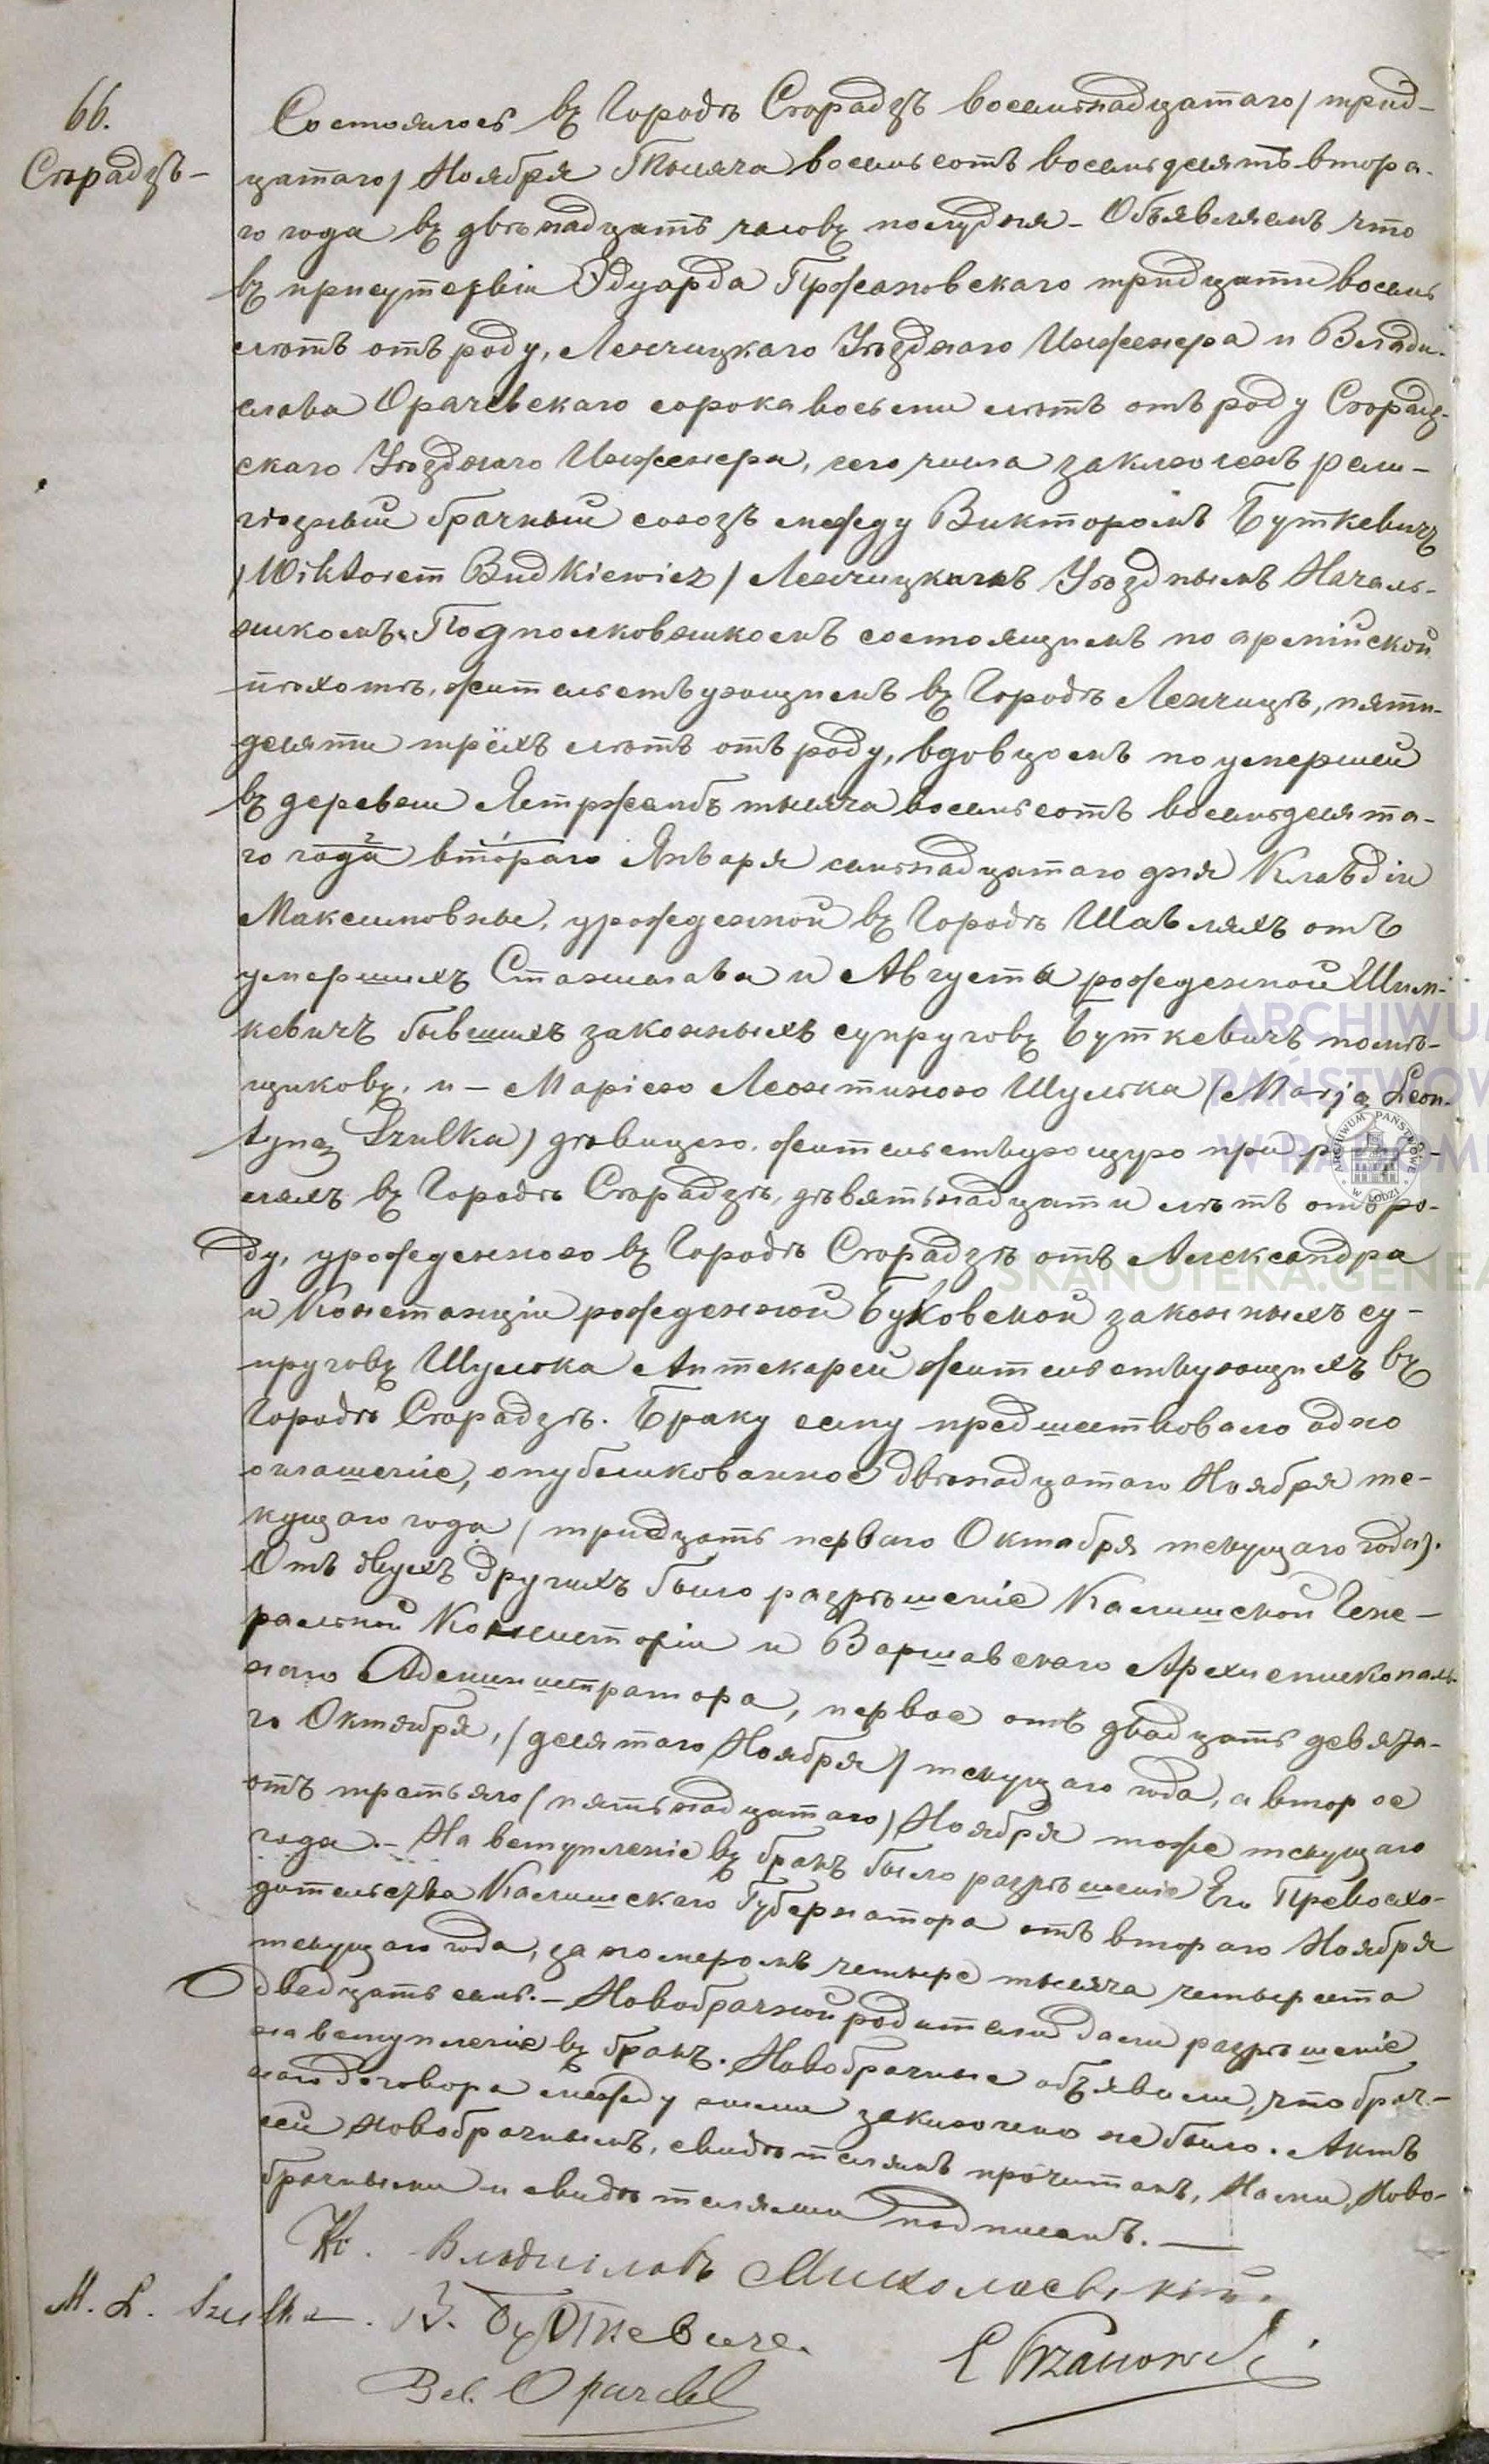 66.
Сѣрадзъ-
Состоялось въ Городѣ Сѣрадзѣ восемнадцатаго /трид-
цатаго/ Ноября Тысяча восемьсотъ восемьдесятъ втора-
го года въ двѣнадцать часовъ полудня - Объявляемъ что
въ присутствіи Эдуарда Пржановскаго тридцати восемь
лѣтъ отъ роду, Ленчицкаго Уѣзднаго Инженера и Влади-
слава Орачевскаго сорока восьми лѣтъ отъ роду Сѣрадз-
скаго Уѣзднаго Инженера, сего числа заключенъ рели-
гіозный брачный союзъ между Викторомъ Буткевичъ
/Wiktorem Budkiewicz/ Ленчицкимъ Уѣзднымъ Началь-
никомъ, Подполковникомъ состоящимъ по армійской
пѣхотѣ, жительствующимъ въ Городѣ Ленчицѣ, пяти-
десяти трёхъ лѣтъ отъ роду, вдовцомъ по умершей
въ деревни Ястржембъ тысяча восемьсотъ восемьдесята-
го года втораго Января семнадцатаго дня Клавдіи
Максимовны, урожденной въ Городѣ Шавляхъ отъ
умершихъ Станислава и Августа рожденной Шим-
кевичъ бывшихъ законныхъ супруговъ Буткевичъ помѣ-
щиковъ, и - Маріею Леонтиною Шулька (Marją Leon-
tyną Szulka) дѣвицею, жительствующую при роди-
еляхъ въ Городѣ Сѣрадзѣ, дѣвятьнадцати лѣтъ отъ ро-
ду, урожденною въ Городѣ Сѣрадзѣ отъ Александра
и Констанціи рожденной Буковской законныхъ су-
пруговъ Шулька Аптекарей жительствующихъ въ
Городѣ Сѣрадзѣ. Браку сему предшествовало одно
оглашеніе, опубликованное двѣнадцатаго Ноября те-
кущаго года (тридцать перваго Октября текущаго года).
Отъ двухъ другихъ было разрѣшеніе Калишской Гене-
ральной Консисторіи и Варшавскаго Архиепископаль-
наго Администратора, первое отъ двадцать девята-
го Октября, /десятаго Ноября/ текущаго года, а второе
отъ третьяго (пятьнадцатаго) Ноября тоже текущаго
года. - На вступленіе въ бракъ было разрѣшеніе Его Превосхо-
дительства Калишскаго Губернатора отъ втораго Ноября
текущаго года, за номеромъ четыре тысяча четыреста
двадцать семь. - Новобрачной родители дали разрѣшеніе
на вступленіе въ бракъ. Новобрачные объявили, что брач-
наго договора между ними заключено не было. Актъ
сей новобрачнымъ, свидѣтелямъ прочитанъ, Нами, Ново-
брачными и свидѣтелями подписанъ. —
Кс. Владиславъ Миколаевскій
M. L. Szulka. В. Буткевичъ.
E Przanowski
Вл. Орачевс
ARCHIWUM
PAŃSTWOWE
W RADOMI
ARCHIWUM PAŃSTWOWE W ŁODZI
SKANOTEKA.GENEA